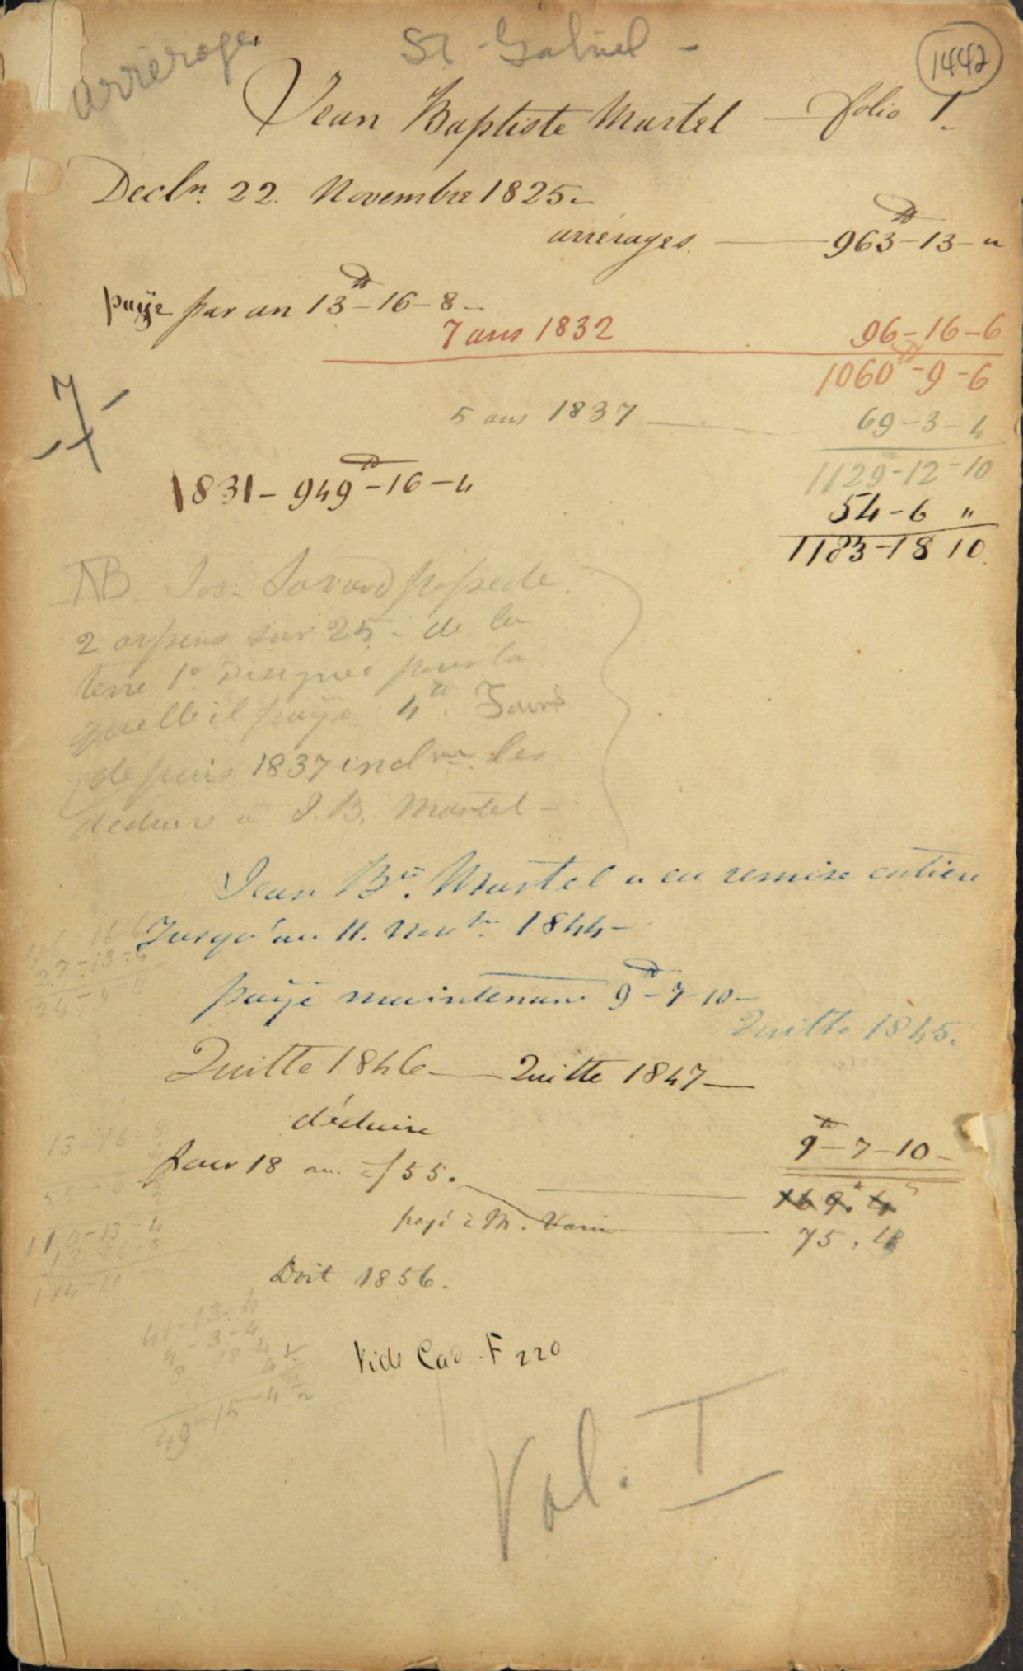 arrérages St Gabriel - 1442
Jean Baptiste Martel — folio 1.
Decln. 22. Novembre 1825.-
arrérages — 963 - 13 - "
paÿe par an 13 - 16 - 8 -
7 ans 1832 96 - 16 - 6
1060 - 9 - 6
5 ans 1837 — 69 - 3 - 4
1129 - 12 - 10
1831 - 949 - 16 - 4
54 - 6 "
1183 - 18 10
NB. Jos. Savard possede
2 arpens sur 25 - de la
terre 1° Designée pour la
quelle il paÿe 4
depuis 1837 les
deduire a J. B. Martel -
Jean Bte. Martel a eu remise entiere
Jusqu'au 11. Novbre 1844 -
paÿe maintenant 9 - 7 - 10 -
Quitte 1845.
Quitte 1846 — Quitte 1847 —
déduire
9 - 7 - 10 -
pour 18 an. à /55.
169. 4
payé à M. 75. 4
Doit 1856.
Vide Cad - F 220
13 - 16 - 8
49 - 15 - 4
Vol. I